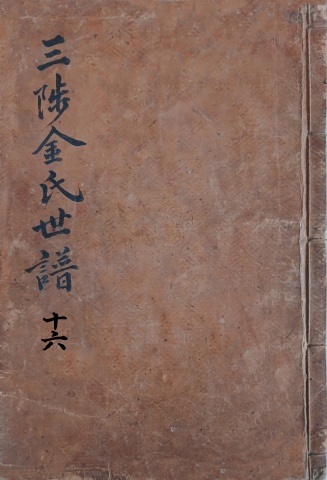 三陟金氏世譜
十六